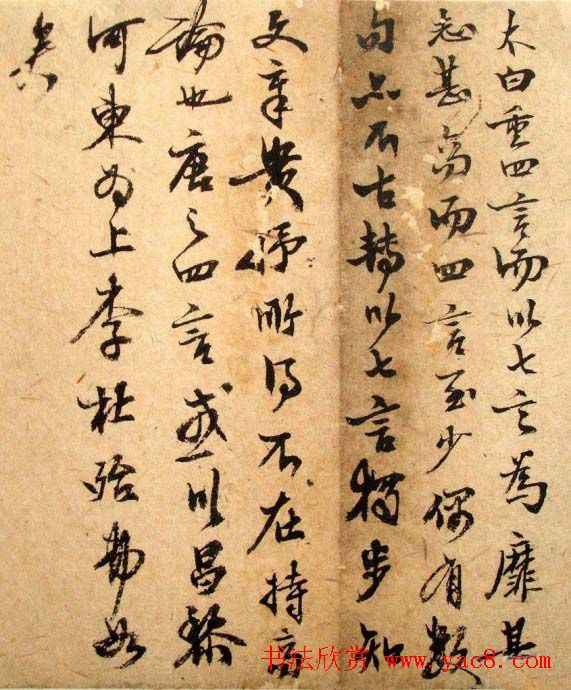 太白重四言而以七言為靡其
志甚高而四言至少偶有數
句亦不古轉以七言獨步知
文章貴抒所得不在持高
論也唐之四言或以昌黎
河東为上李杜殆弗如
矣
书法欣赏 www.yac8.com